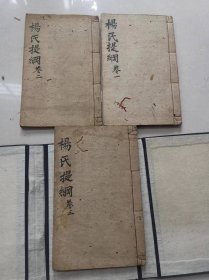 楊氏提綱 卷二
楊氏提綱 卷一
楊氏提綱 卷三